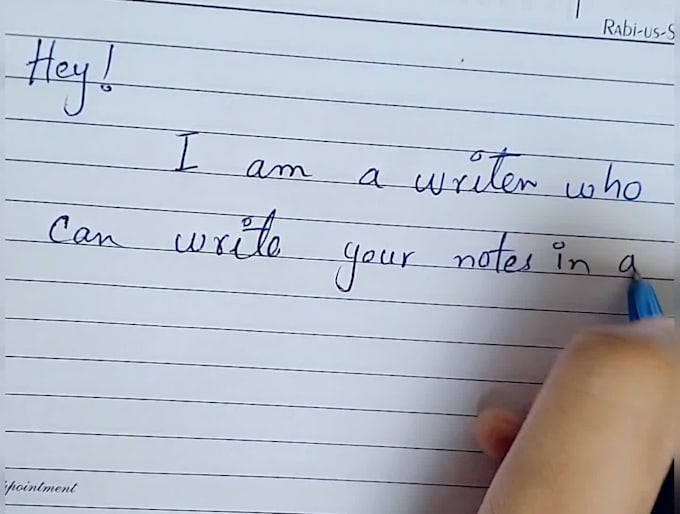 RAbi-us-S
Hey!
I am a writer who
can write your notes in a
ppointment